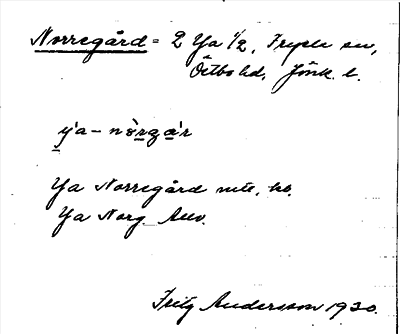 Norregård = 2 Ya 1/2, Tryele sn,
Östbo hd, Jönk. l.
ý̱a – nò̱rga̱r
Ya Norregård mtl, kb.
Ya Norg. Anv.
Fritz Andersson 1930.